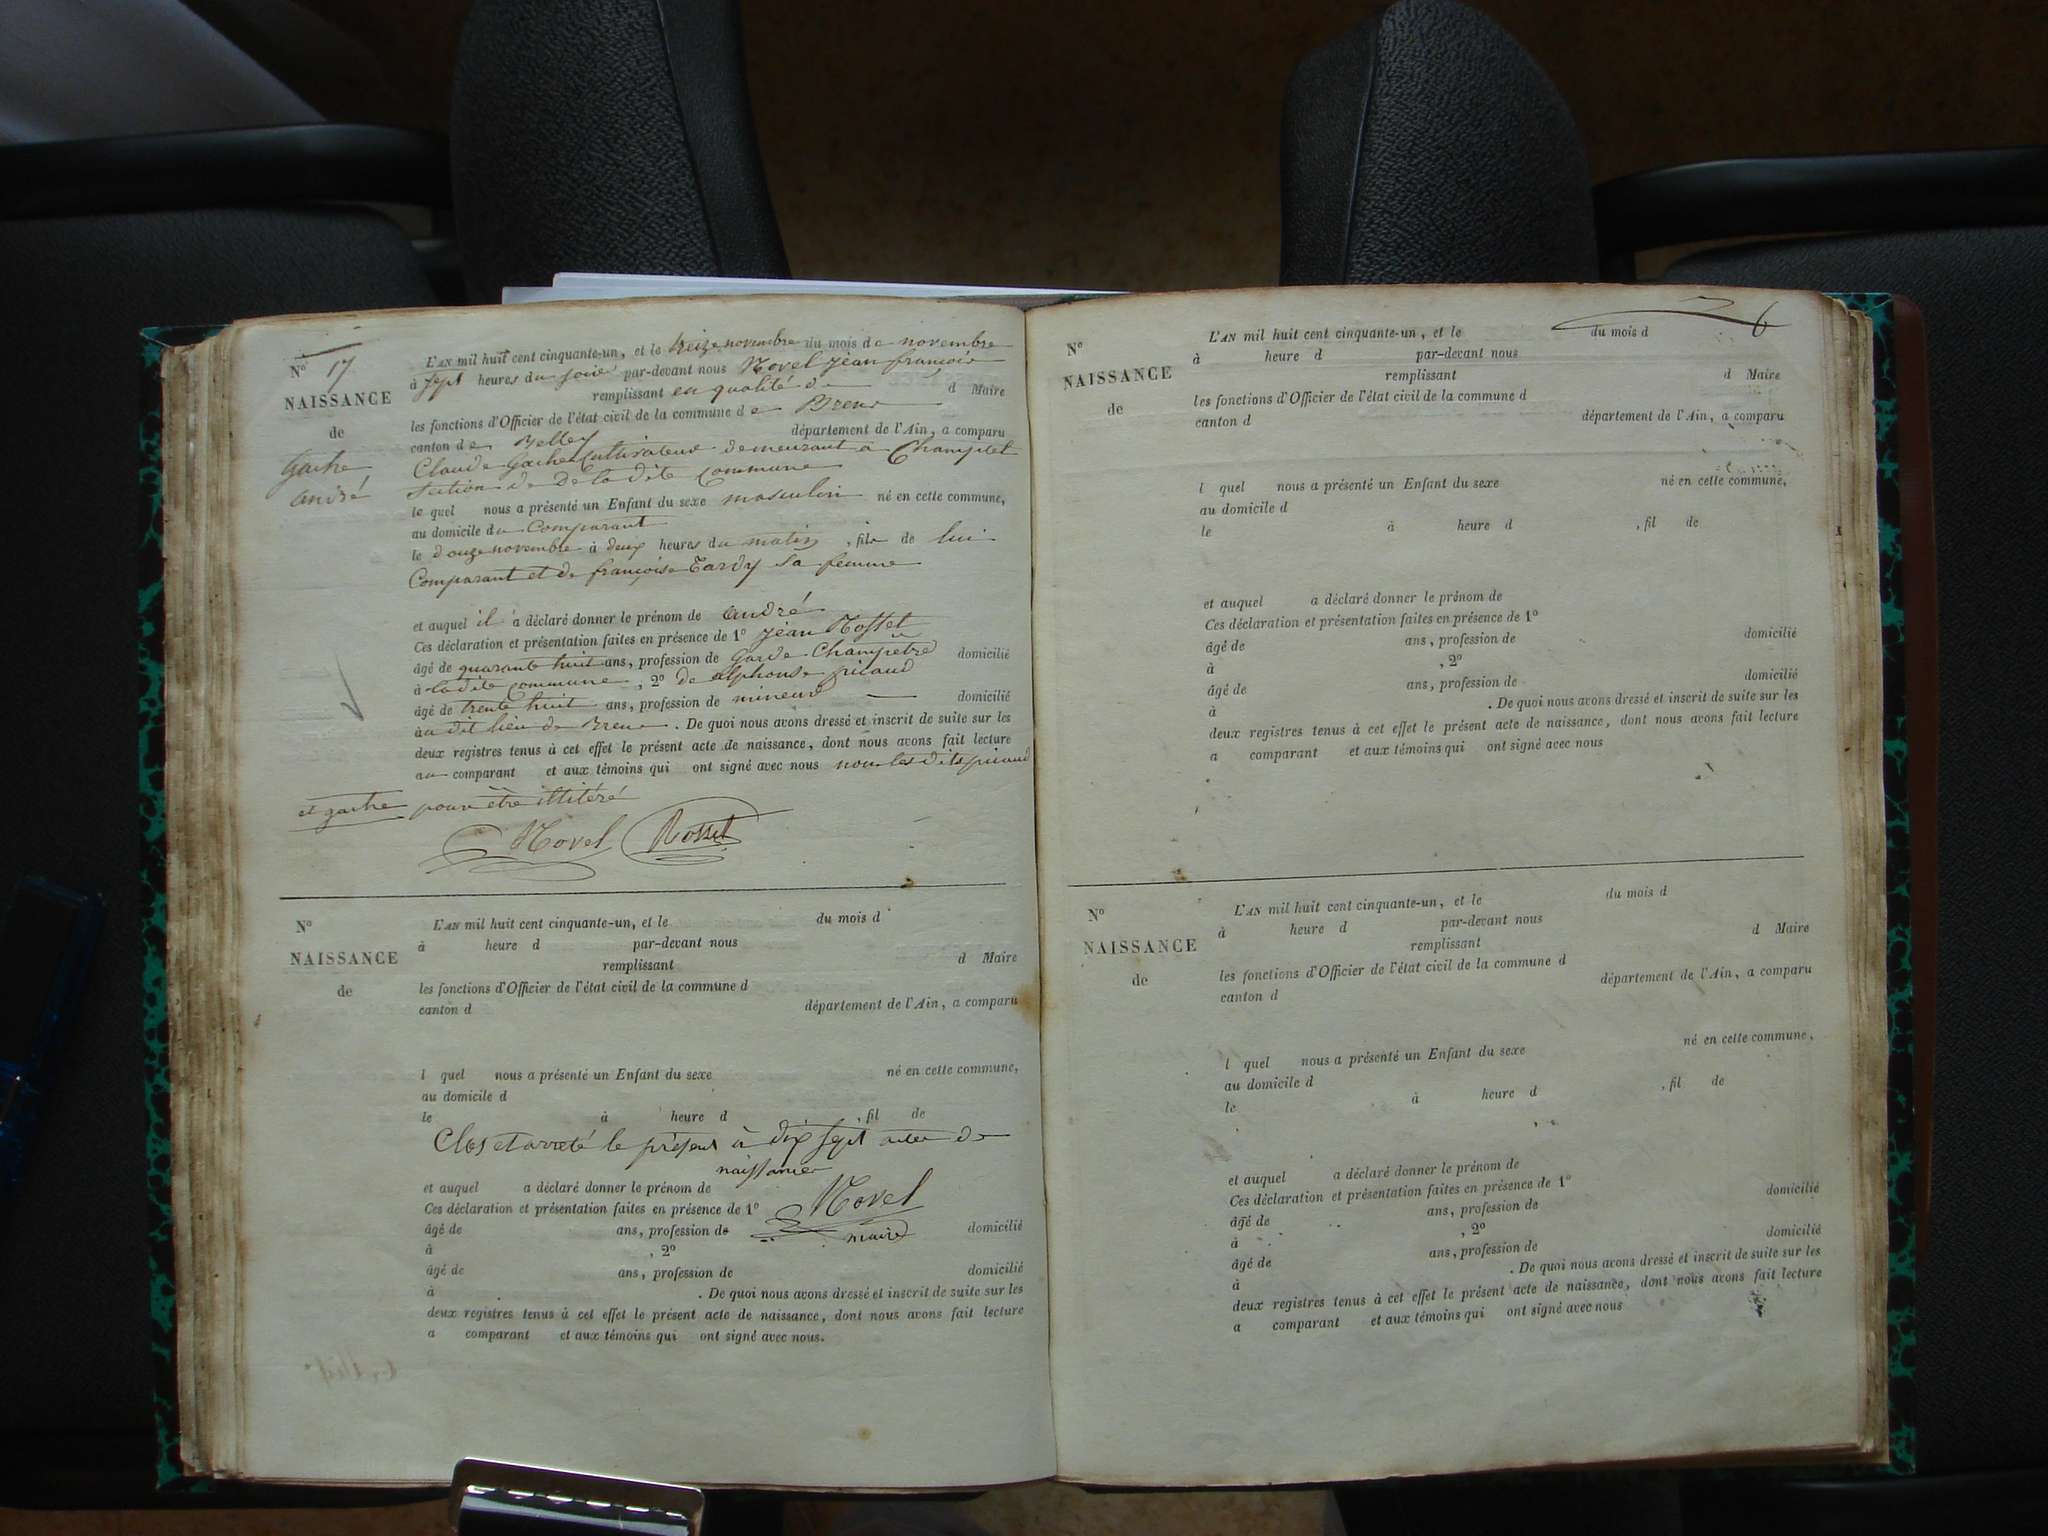 N° 17
NAISSANCE
de
Gache
André
L'AN mil huit cent cinquante-un, et le treize novembre du mois de novembre
à sept heures du soir par-devant nous Novel jean françois
remplissant en qualité de d Maire
les fonctions d'Officier de l'état civil de la commune de Brens
canton de Belley département de l'Ain, a comparu
Claude Gache Cultivateur demeurant à Champtel
section de De la dite Commune
le quel nous a présenté un Enfant du sexe masculin né en cette commune,
au domicile du Comparant
le douze novembre à deux heures du matin, fils de lui
Comparant et de françoise Tardy sa femme
et auquel il a déclaré donner le prénom de André
Ces déclaration et présentation faites en présence de 1° jean Rosset
âgé de quarante huit ans, profession de Garde Champêtre domicilié
à la dite commune, 2° de alphonse picaud
âgé de trente huit ans, profession de mineur domicilié
au dit lieu de Brens. De quoi nous avons dressé et inscrit de suite sur les
deux registres tenus à cet effet le présent acte de naissance, dont nous avons fait lecture
au comparant et aux témoins qui ont signé avec nous non les dits picaud
et gache pour être illitéré
Novel Rosset
N°
NAISSANCE
de
L'AN mil huit cent cinquante-un, et le du mois d
à heure d par-devant nous
remplissant d Maire
les fonctions d'Officier de l'état civil de la commune d
canton d département de l'Ain, a comparu
l quel nous a présenté un Enfant du sexe né en cette commune,
au domicile d
le à heure d , fil de
Clos et arreté le présent à dix sept actes de
naissance
et auquel a déclaré donner le prénom de
Novel
Ces déclaration et présentation faites en présence de 1°
âgé de ans, profession de domicilié
maire
à , 2°
âgé de ans, profession de domicilié
à . De quoi nous avons dressé et inscrit de suite sur les
deux registres tenus à cet effet le présent acte de naissance, dont nous avons fait lecture
a comparant et aux témoins qui ont signé avec nous.
6
N°
NAISSANCE
de
L'AN mil huit cent cinquante-un, et le du mois d
à heure d par-devant nous
remplissant d Maire
les fonctions d'Officier de l'état civil de la commune d
canton d département de l'Ain, a comparu
l quel nous a présenté un Enfant du sexe né en cette commune,
au domicile d
le à heure d , fil de
et auquel a déclaré donner le prénom de
Ces déclaration et présentation faites en présence de 1°
âgé de ans, profession de domicilié
à , 2°
âgé de ans, profession de domicilié
à . De quoi nous avons dressé et inscrit de suite sur les
deux registres tenus à cet effet le présent acte de naissance, dont nous avons fait lecture
a comparant et aux témoins qui ont signé avec nous
N°
NAISSANCE
de
L'AN mil huit cent cinquante-un, et le du mois d
à heure d par-devant nous
remplissant d Maire
les fonctions d'Officier de l'état civil de la commune d
canton d département de l'Ain, a comparu
l quel nous a présenté un Enfant du sexe né en cette commune,
au domicile d
le à heure d , fil de
et auquel a déclaré donner le prénom de
Ces déclaration et présentation faites en présence de 1°
âgé de ans, profession de domicilié
à , 2°
âgé de ans, profession de domicilié
à . De quoi nous avons dressé et inscrit de suite sur les
deux registres tenus à cet effet le présent acte de naissance, dont nous avons fait lecture
a comparant et aux témoins qui ont signé avec nous